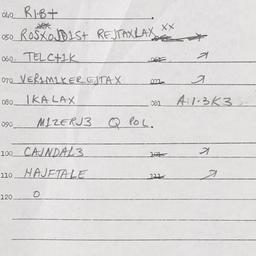 040 RIBT
050 ROSXOJDISt REJTAXLAX XX
060 TELCTIK
070 VERIMIXEREJTAX 071
080 IKALAX 081 A11-3K3
090 MIZERJ3 Q POL.
100 CAJNDAL3 101
110 HAJFTALE 111
120 O